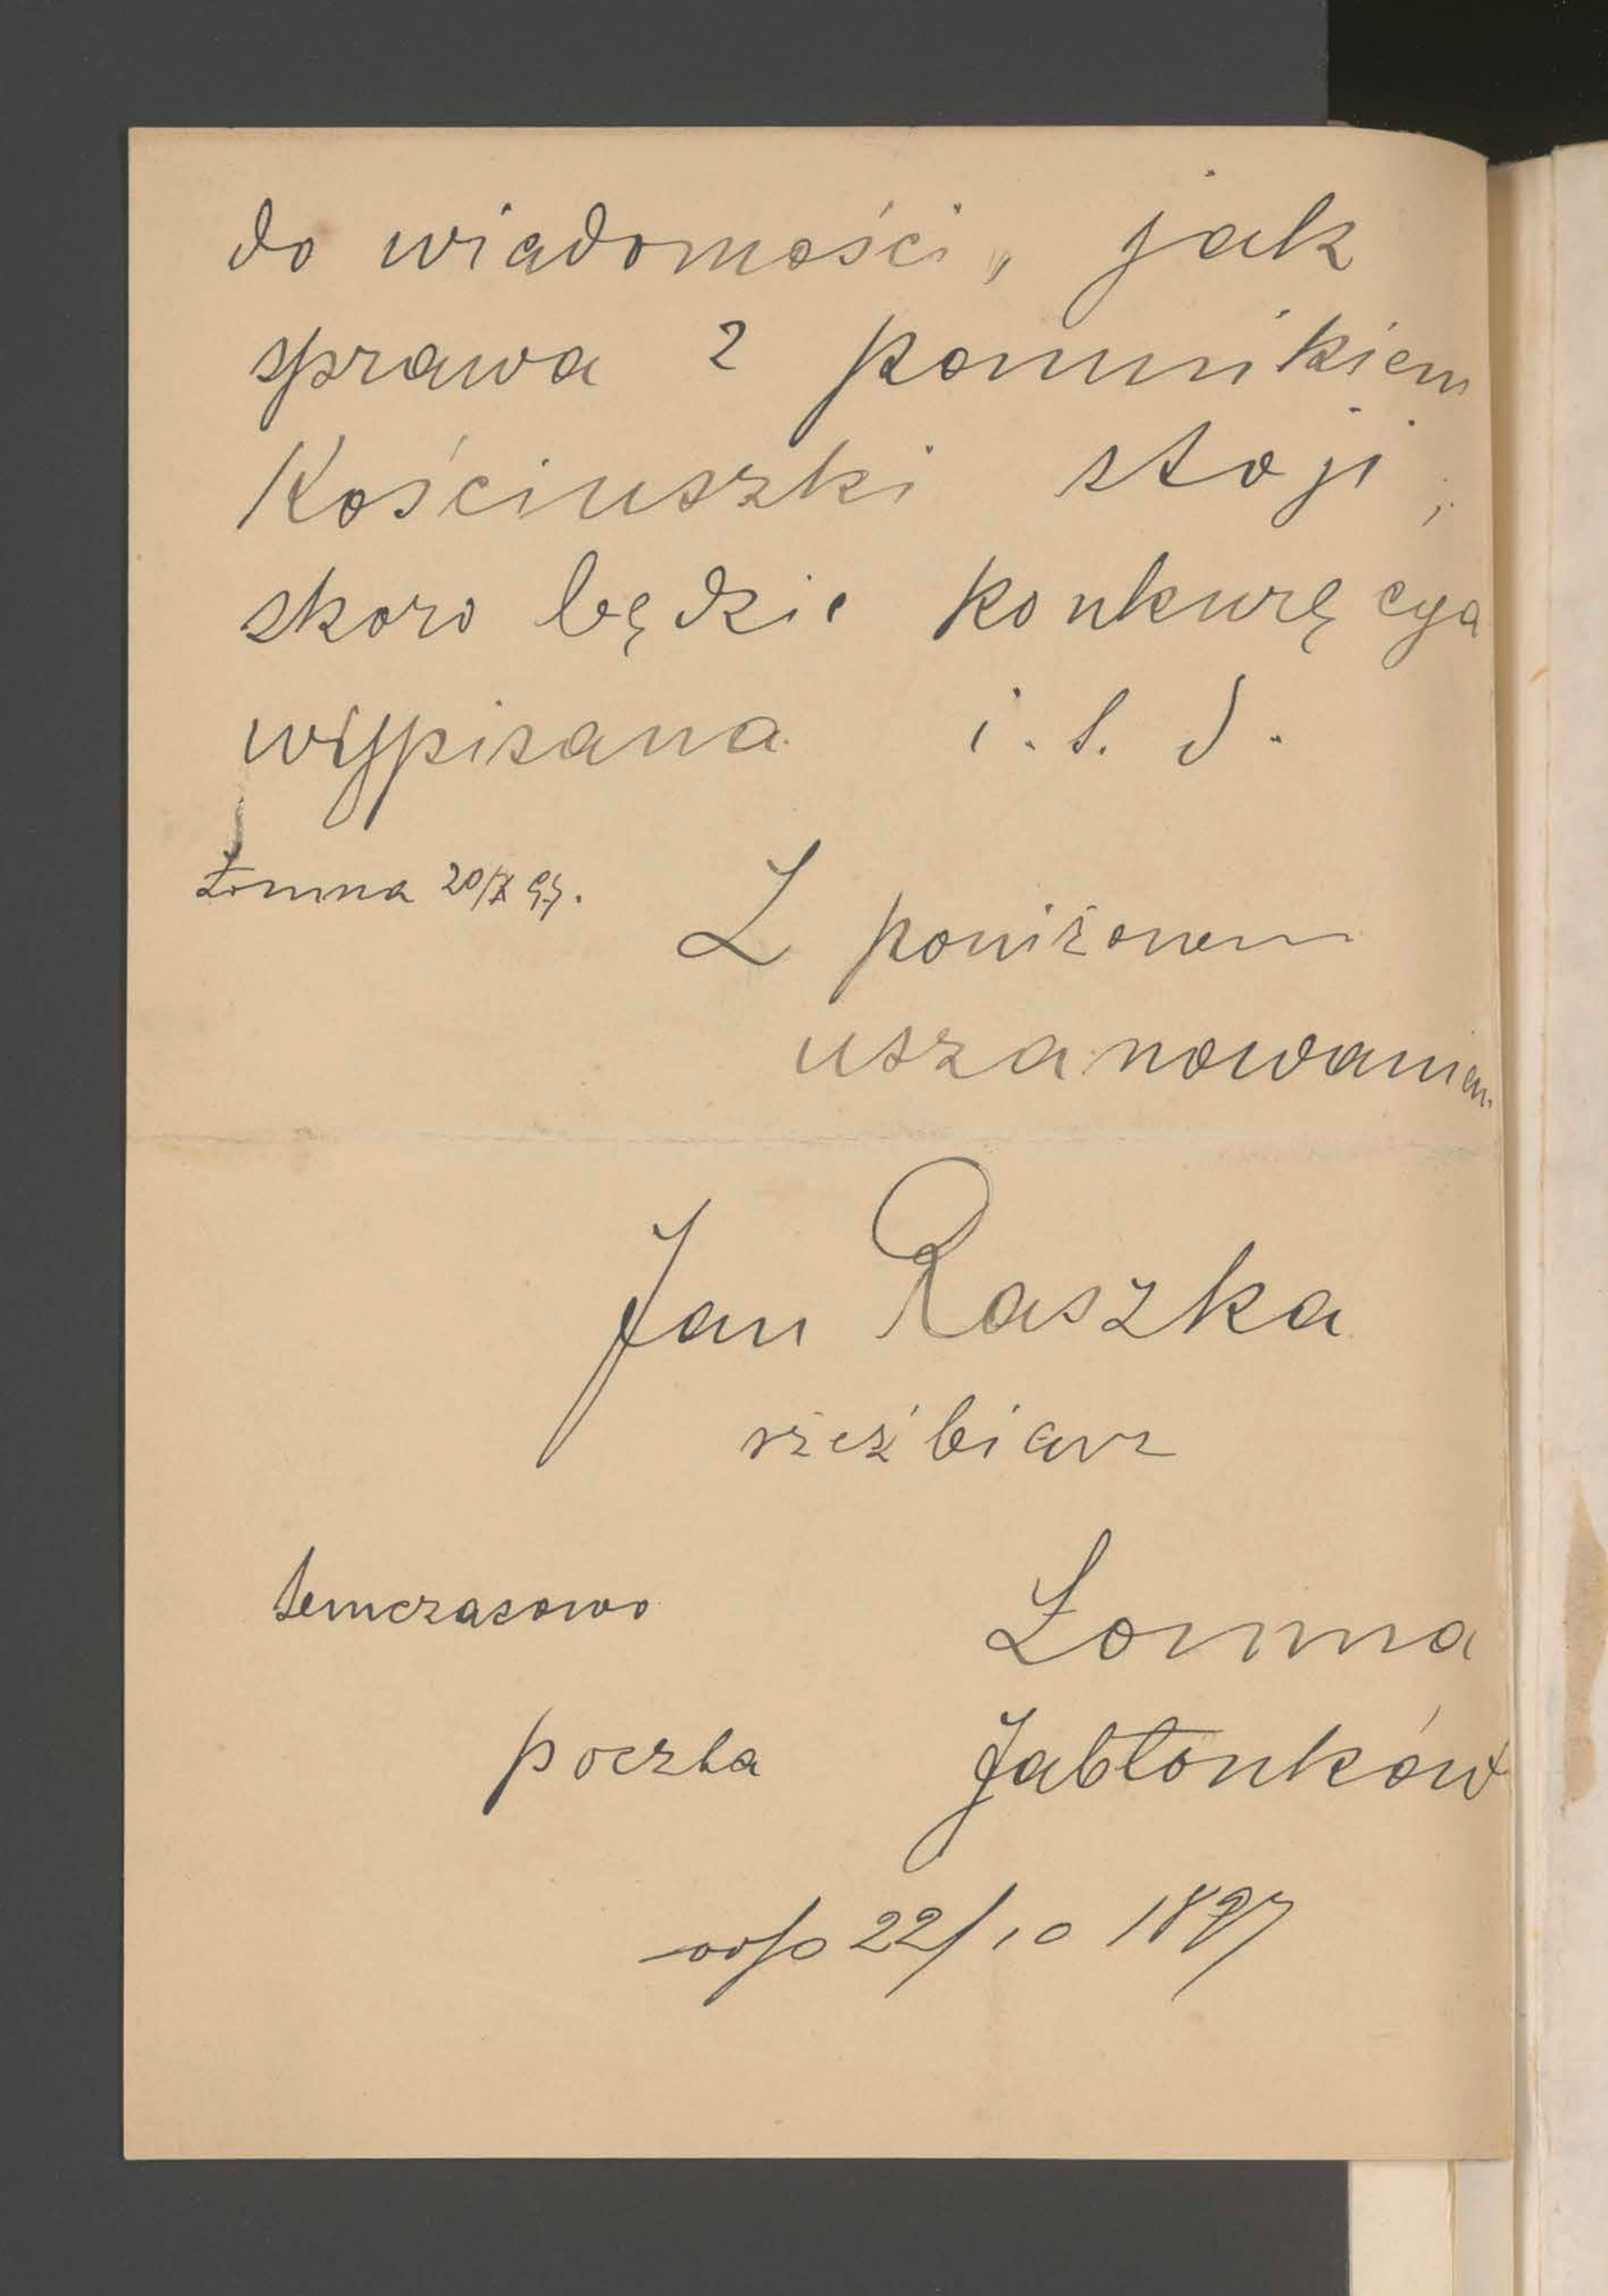 do wiadomości, jak
sprawa z pomnikiem
Kościuszki stoji;
skoro będzie konkuręcya
wypisana i. t. d.
Łomna 20/X 97.
Z poniżonem
uszanowaniem
Jan Raszka
rzeźbiarz
temczasowo Łomna
poczta Jabłonków
odp 22/10 1897